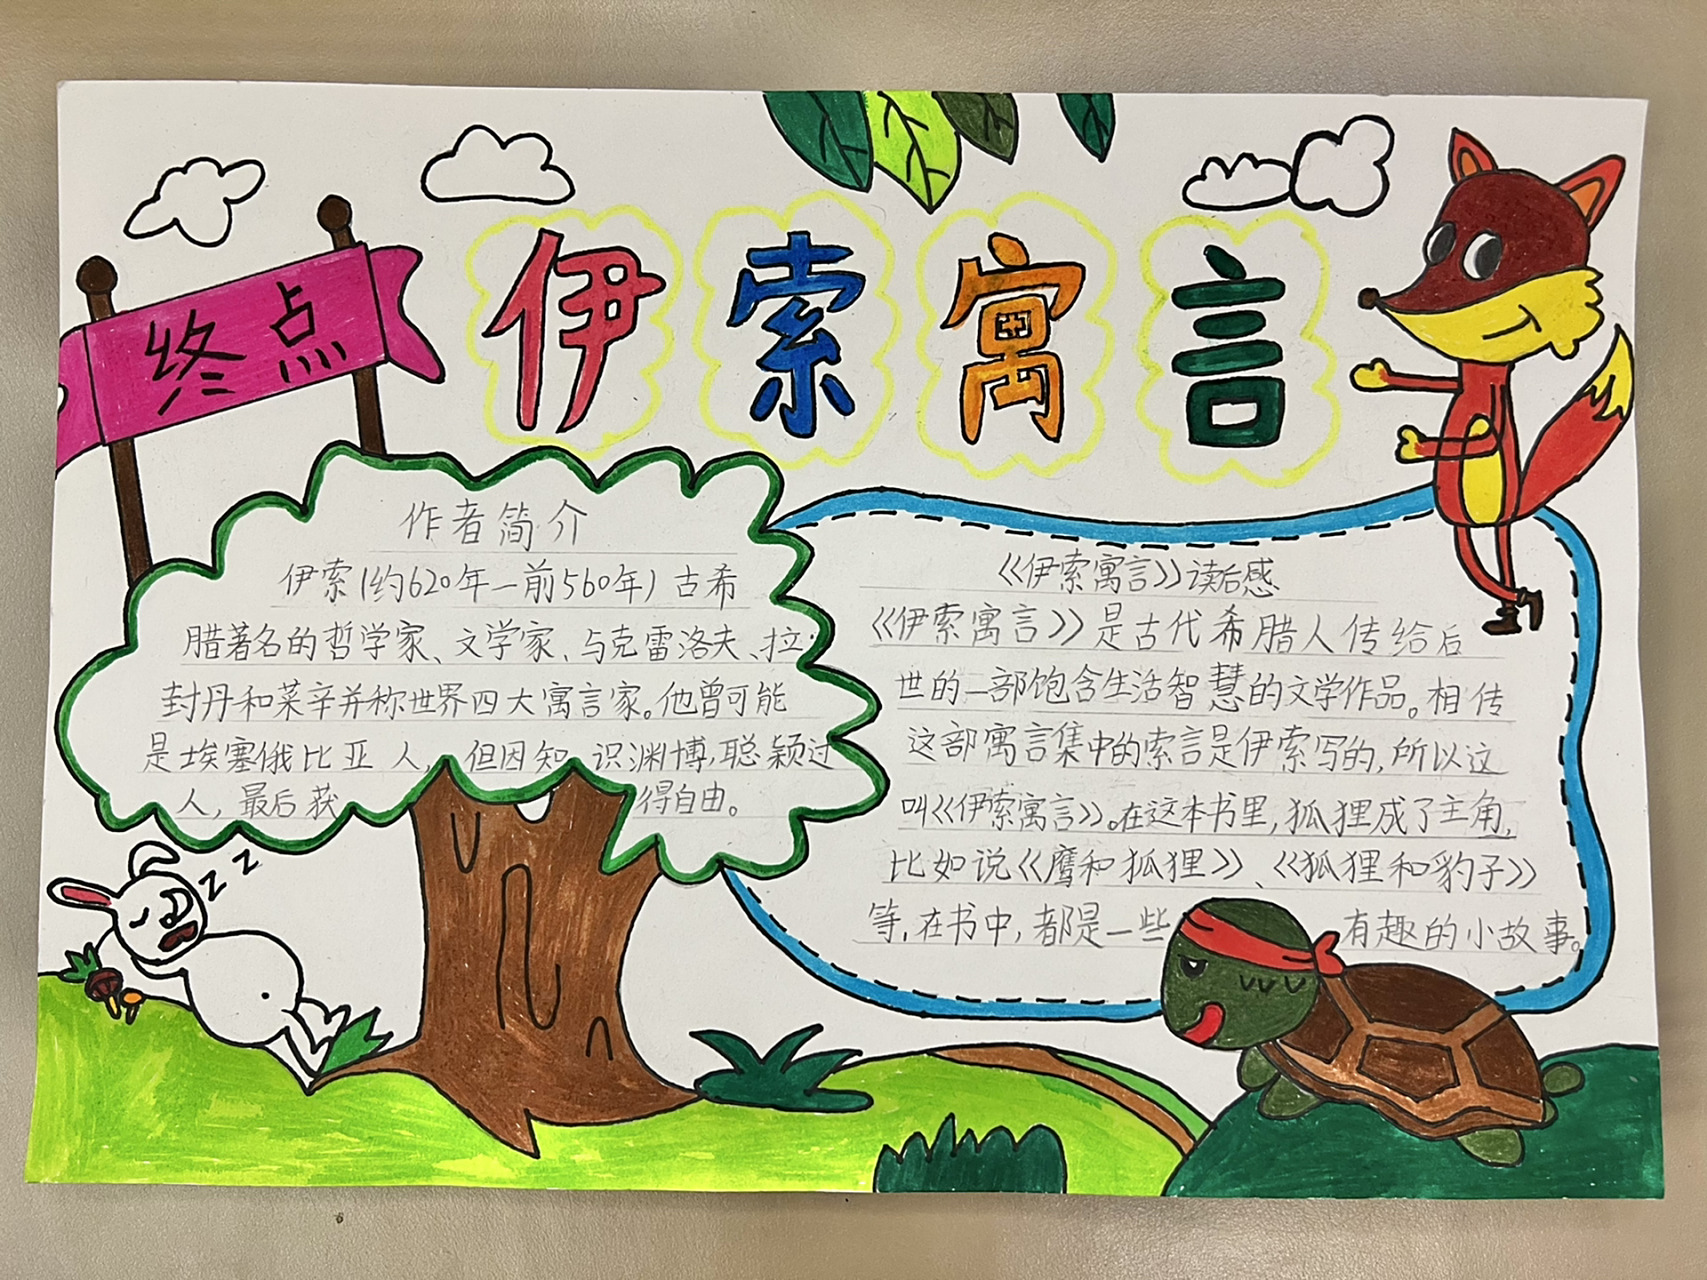 伊索寓言
终点
作者简介
伊索(约620年—前560年)古希
腊著名的哲学家、文学家、与克雷洛夫、拉
封丹和莱辛并称世界四大寓言家。他曾可能
是埃塞俄比亚人,但因知识渊博,聪颖过
人,最后获得自由。
《伊索寓言》读后感
《伊索寓言》是古代希腊人传给后
世的一部饱含生活智慧的文学作品。相传
这部寓言集中的索言是伊索写的,所以这
叫《伊索寓言》。在这本书里,狐狸成了主角,
比如说《鹰和狐狸》、《狐狸和豹子》
等,在书中,都是一些有趣的小故事。
z z z